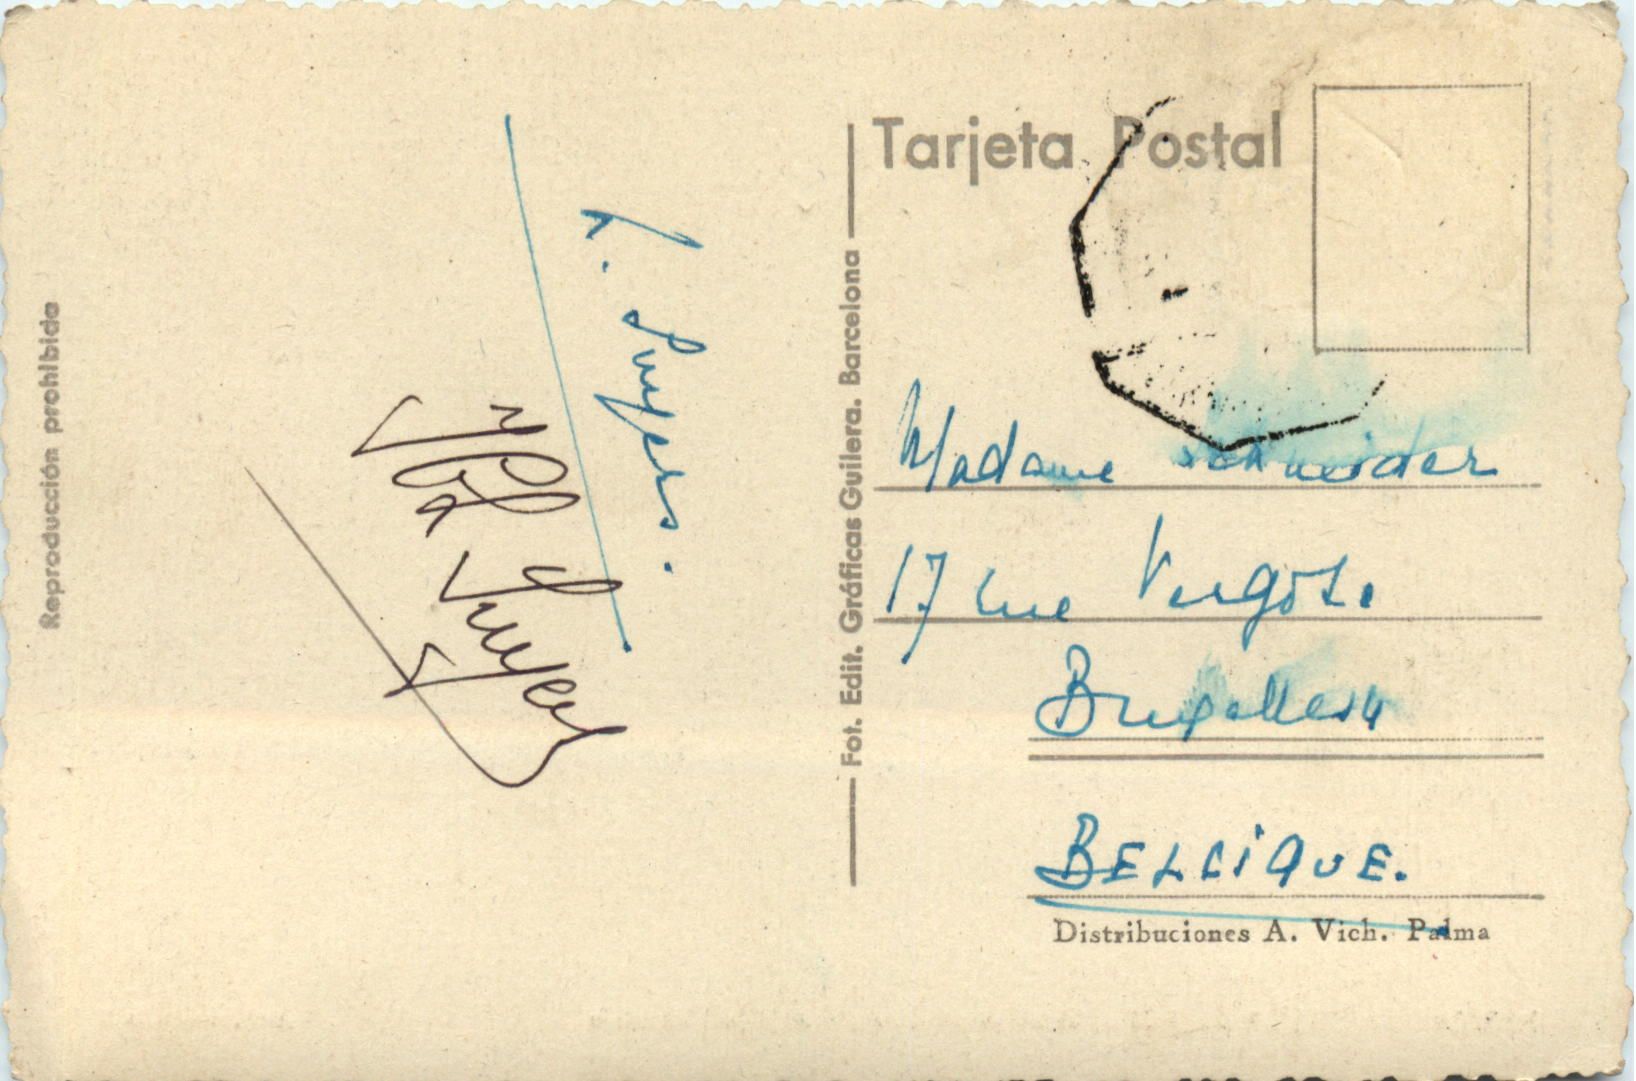 Reproducción prohibida
L. Snyers.
Snyers
Fot. Edit. Gráficas Guilera. Barcelona
Tarjeta Postal
Madame Schneider
17 rue Vergote
Bruxelles 4
BELGIQUE.
Distribuciones A. Vich. Palma